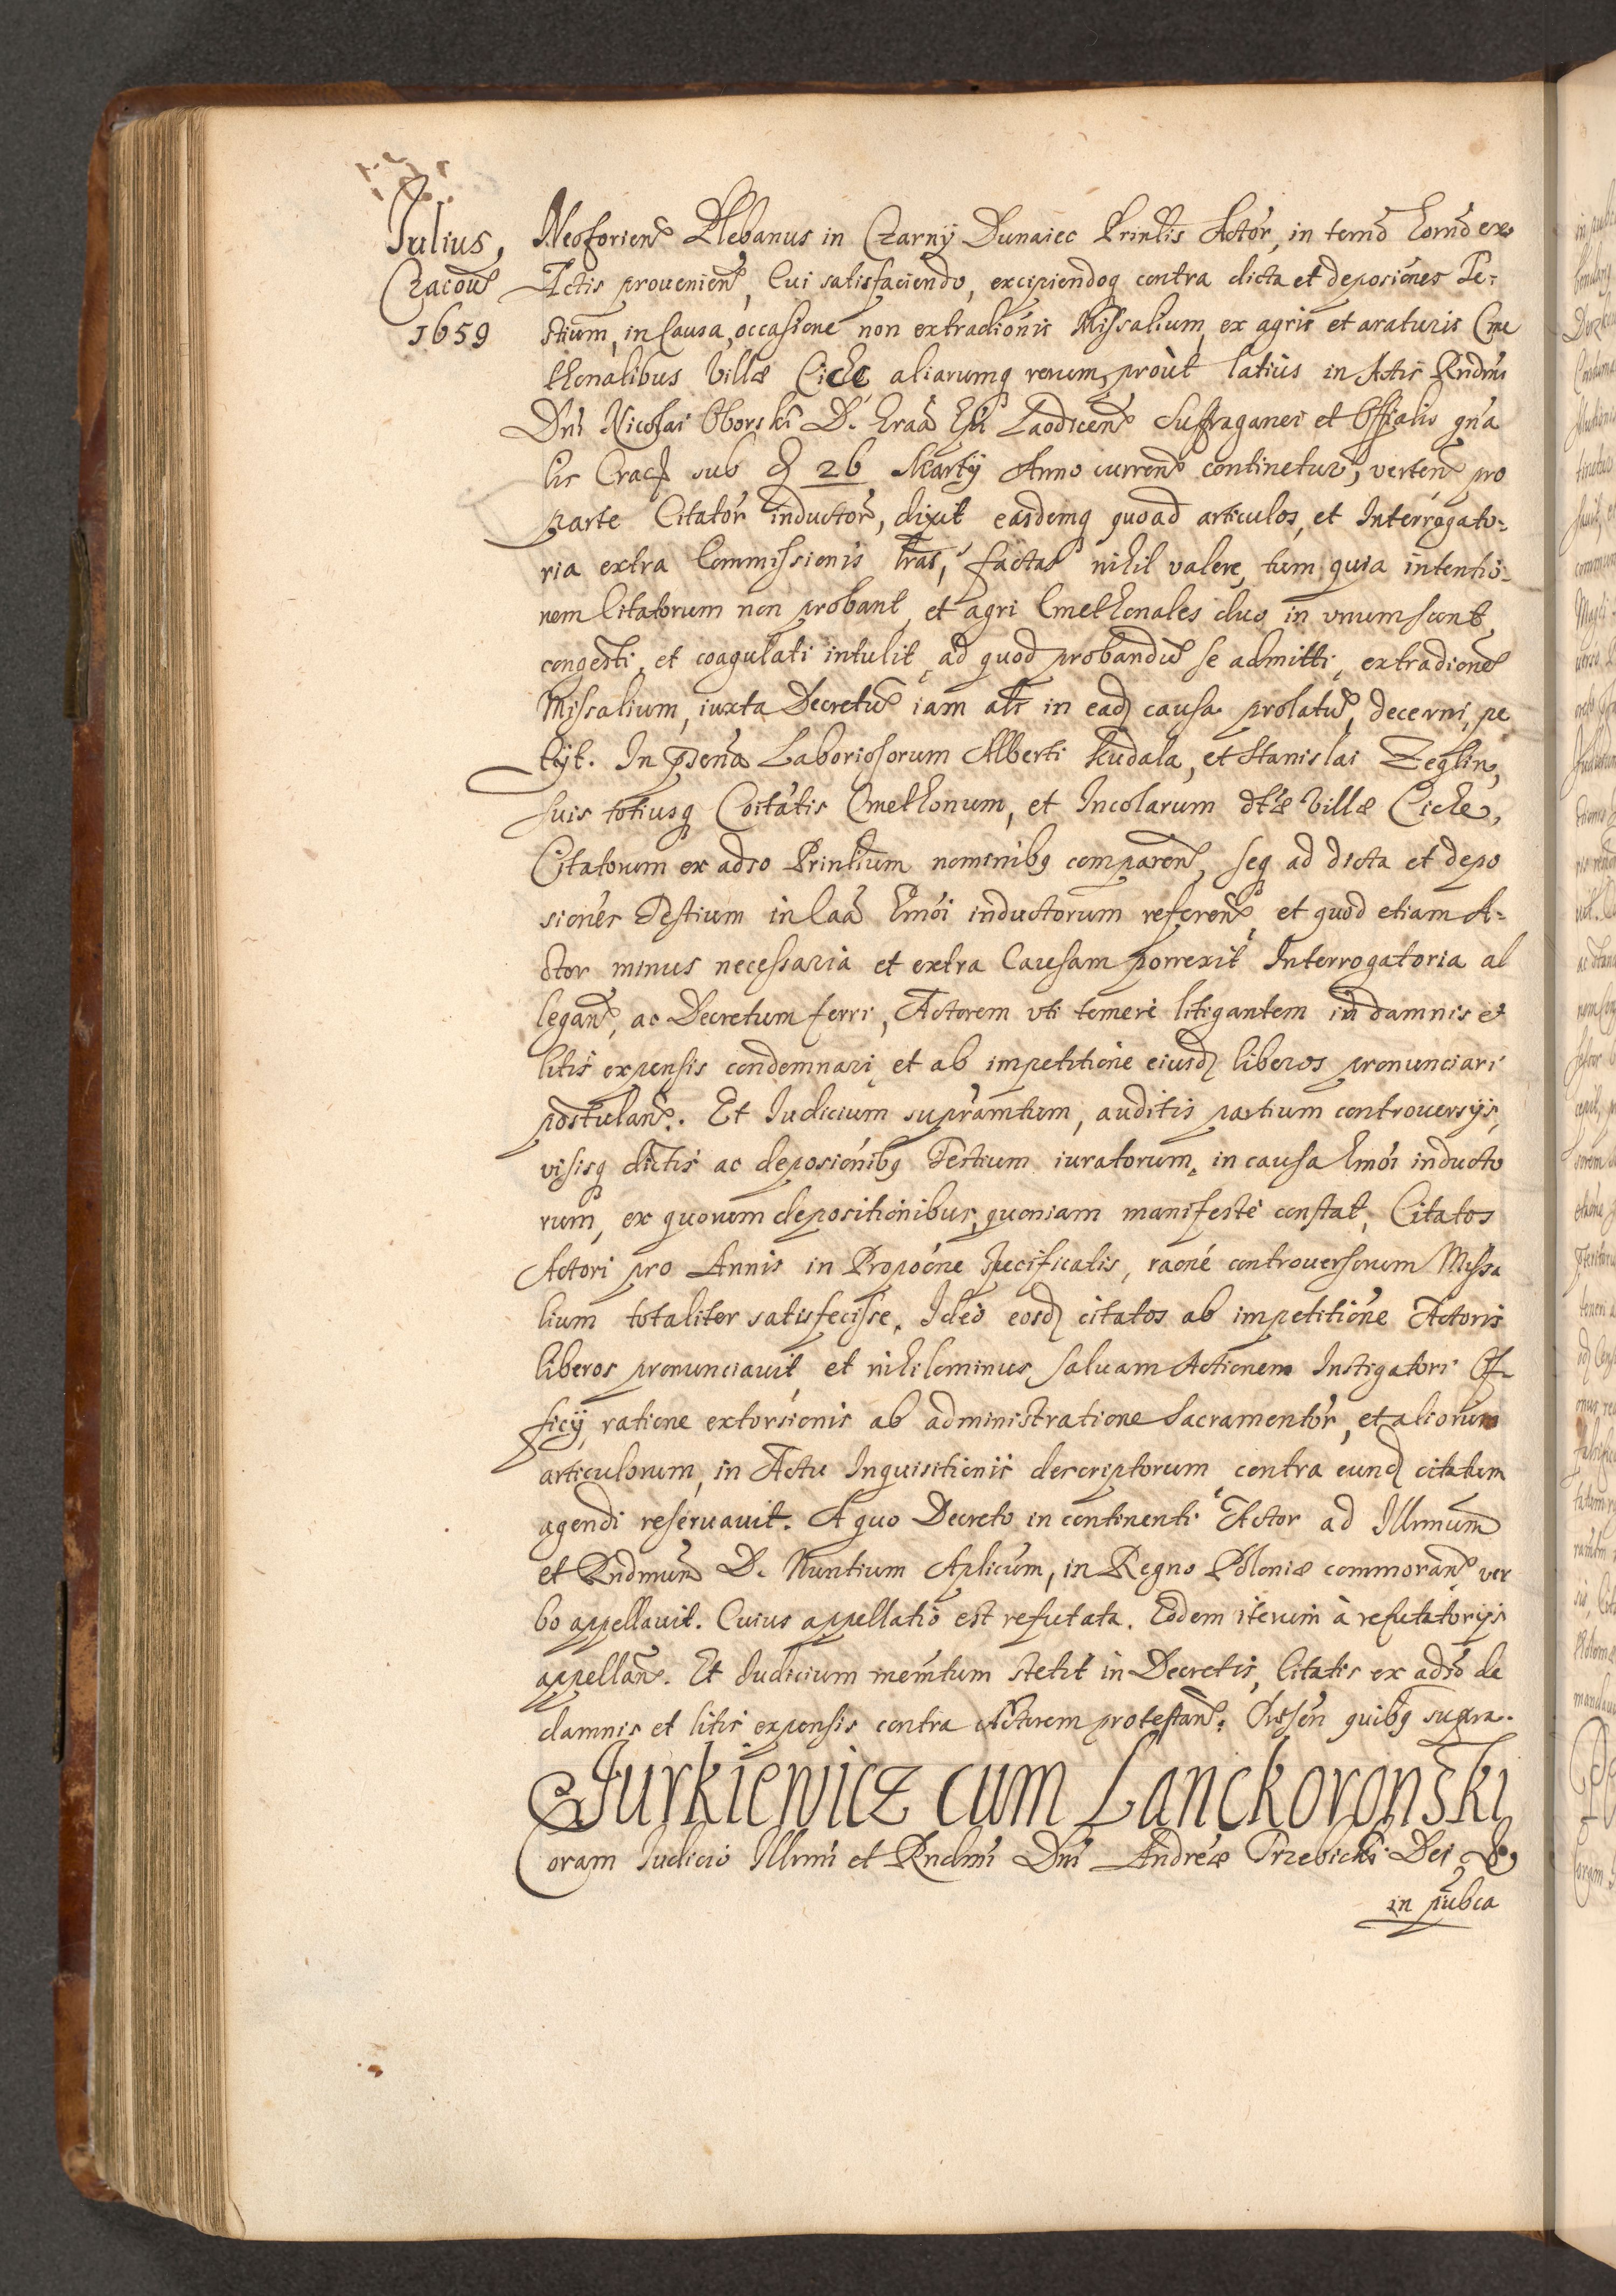 Julius,
Cracoū
1659
Neoforien̄ Plebanus in Czarny Dunaiec Prinlis Actor, in termō hornō ex
Actis prouenien̄, Cui satisfaciendo, excipiendoq contra dicta et deposiōnes Te-
stium, in Causa, occasione non extradiōnis Missalium, ex agris et araturis Cme
thonalibus Villæ Ciche aliarumq rerum, proùt latiùs in Actis Rndmi
Dni Nicolai Oborski D. graā Epi Laodicen̄ Suffraganei et Offialis gna
lis Crac sub d 26 Martij Anno curren̄ continetur, verten̄ pro
parte Citator inductor, dixit easdemq quoad articulos, et Interrogato-
ria extra Commissionis lras, factas nihil valere, tum quia intentio-
nem Citatorum non probant, et agri Cmethonales duo in vnum sunt
congesti, et coagulati intulit, ad quod probandū se admitti, extradionē
Missalium, iuxta Decretū iam als in ead causa prolatū, decerni, pe
tijt. In pñtia Laboriosorum Alberti Kudala, et Stanislai Zeglin,
suis totiusq Coitatis Cmethonum, et Incolarum dtæ Villæ Ciche,
Citatorum ex adso Prinlium nominibq comparen̄, seq ad dicta et depo
siones Testium in Caā hmoi inductorum referen̄, et quod etiam A-
ctor minus necessaria et extra Causam porrexit Interrogatoria al
legan̄, ac Decretum ferri, Actorem vti temerè litigantem in damnis et
litis expensis condemnari et ab impetitione eiusd liberos pronunciari
postulan̄. Et Iudicium supramtum, auditis partium controuersijs,
visisq dictis ac deposiōnibq Testium iuratorum, in causa hmoi inducto
rum, ex quorum depositionibus, quoniam manifestè constat, Citatos
Actori pro Annis in Propōne specificatis, raōne controuersorum Missa
lium totaliter satisfecisse, Ideò eosd citatos ab impetitiōne Actoris
liberos pronunciauit et nihilominus saluam Actionem Instigatori Of-
ficij, ratione extorsionis ab administratione Sacramentor, et aliorum
articulorum, in Actu Inquisitionis descriptorum contra eund citatum
agendi reseruauit. A quo Decreto in continenti Actor ad Illrmum
et Rndmum D. Nuntium Aplicum, in Regno Poloniæ commoran̄ ver
bo appellauit. Cuius appellatio est refutata. Eodem iterum à refutatorijs
appellan̄. Et Iudicium memtum stetit in Decretis, Citatis ex adso de
damnis et litis expensis contra Actorem protestan̄. Prsen quibq supra.
Jurkiewicz cum Lanckoronski
Coram Iudicio Illrmi et Rndmi Dni Andreæ Trzebicki Dei &
in pubca